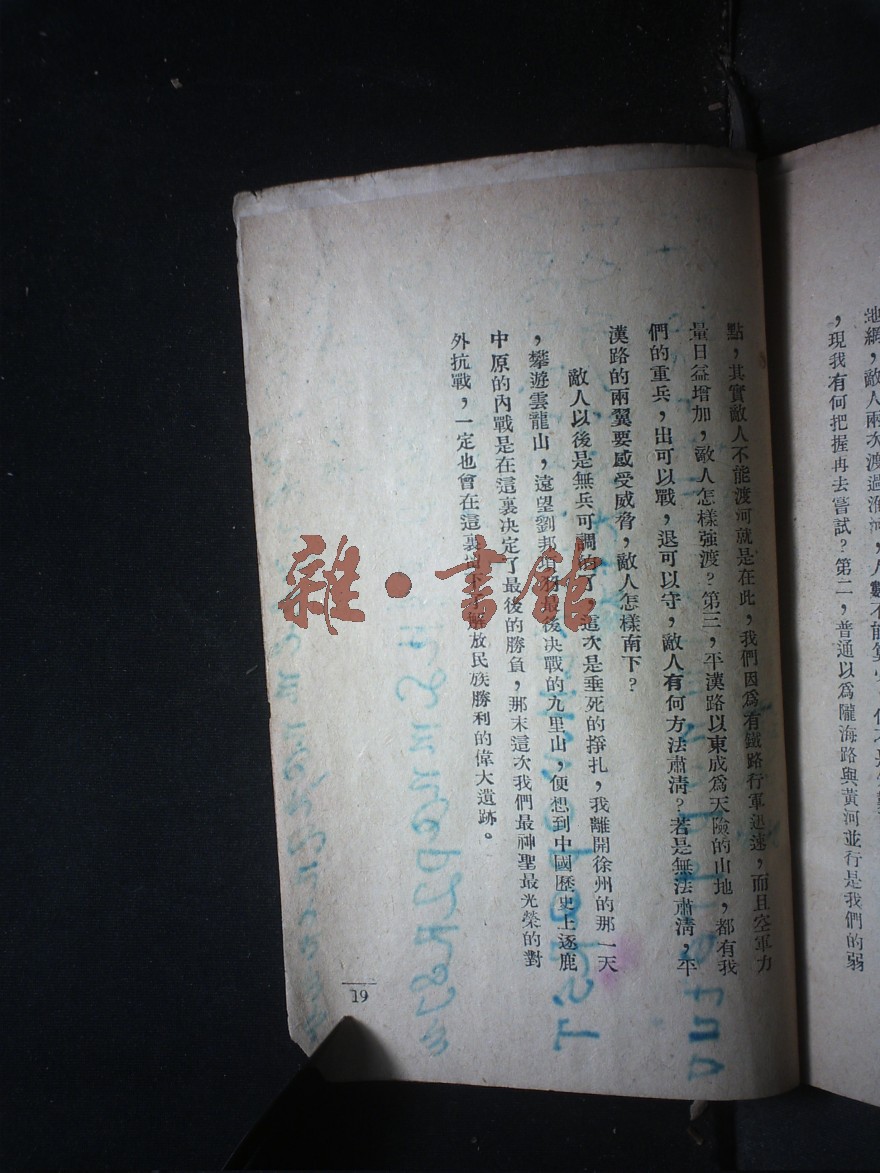 池網，敵人兩次渡過淮河，人數不能算少，
，現我有何把握再去嘗試？第二，普通以爲隴海路與黃河並行是我們的弱
點，其實敵人不能渡河就是在此，我們因爲有鐵路行軍迅速，而且空軍力
量日益增加，敵人怎樣強渡？第三，平漢路以東成爲天險的山地，都有我
們的重兵，出可以戰，退可以守，敵人有何方法肅清？若是無法肅清，平
漢路的兩翼要感受威脅，敵人怎樣南下？
敵人以後是無兵可調的了，這次是垂死的掙扎，我離開徐州的那一天
，攀遊雲龍山，遠望劉邦項羽最後決戰的九里山，便想到中國歷史上逐鹿
中原的內戰是在這裏决定了最後的勝負，那末這次我們最神聖最光榮的對
外抗戰，一定也會在這裏留下解放民族勝利的偉大遺跡。
19
雜·書館